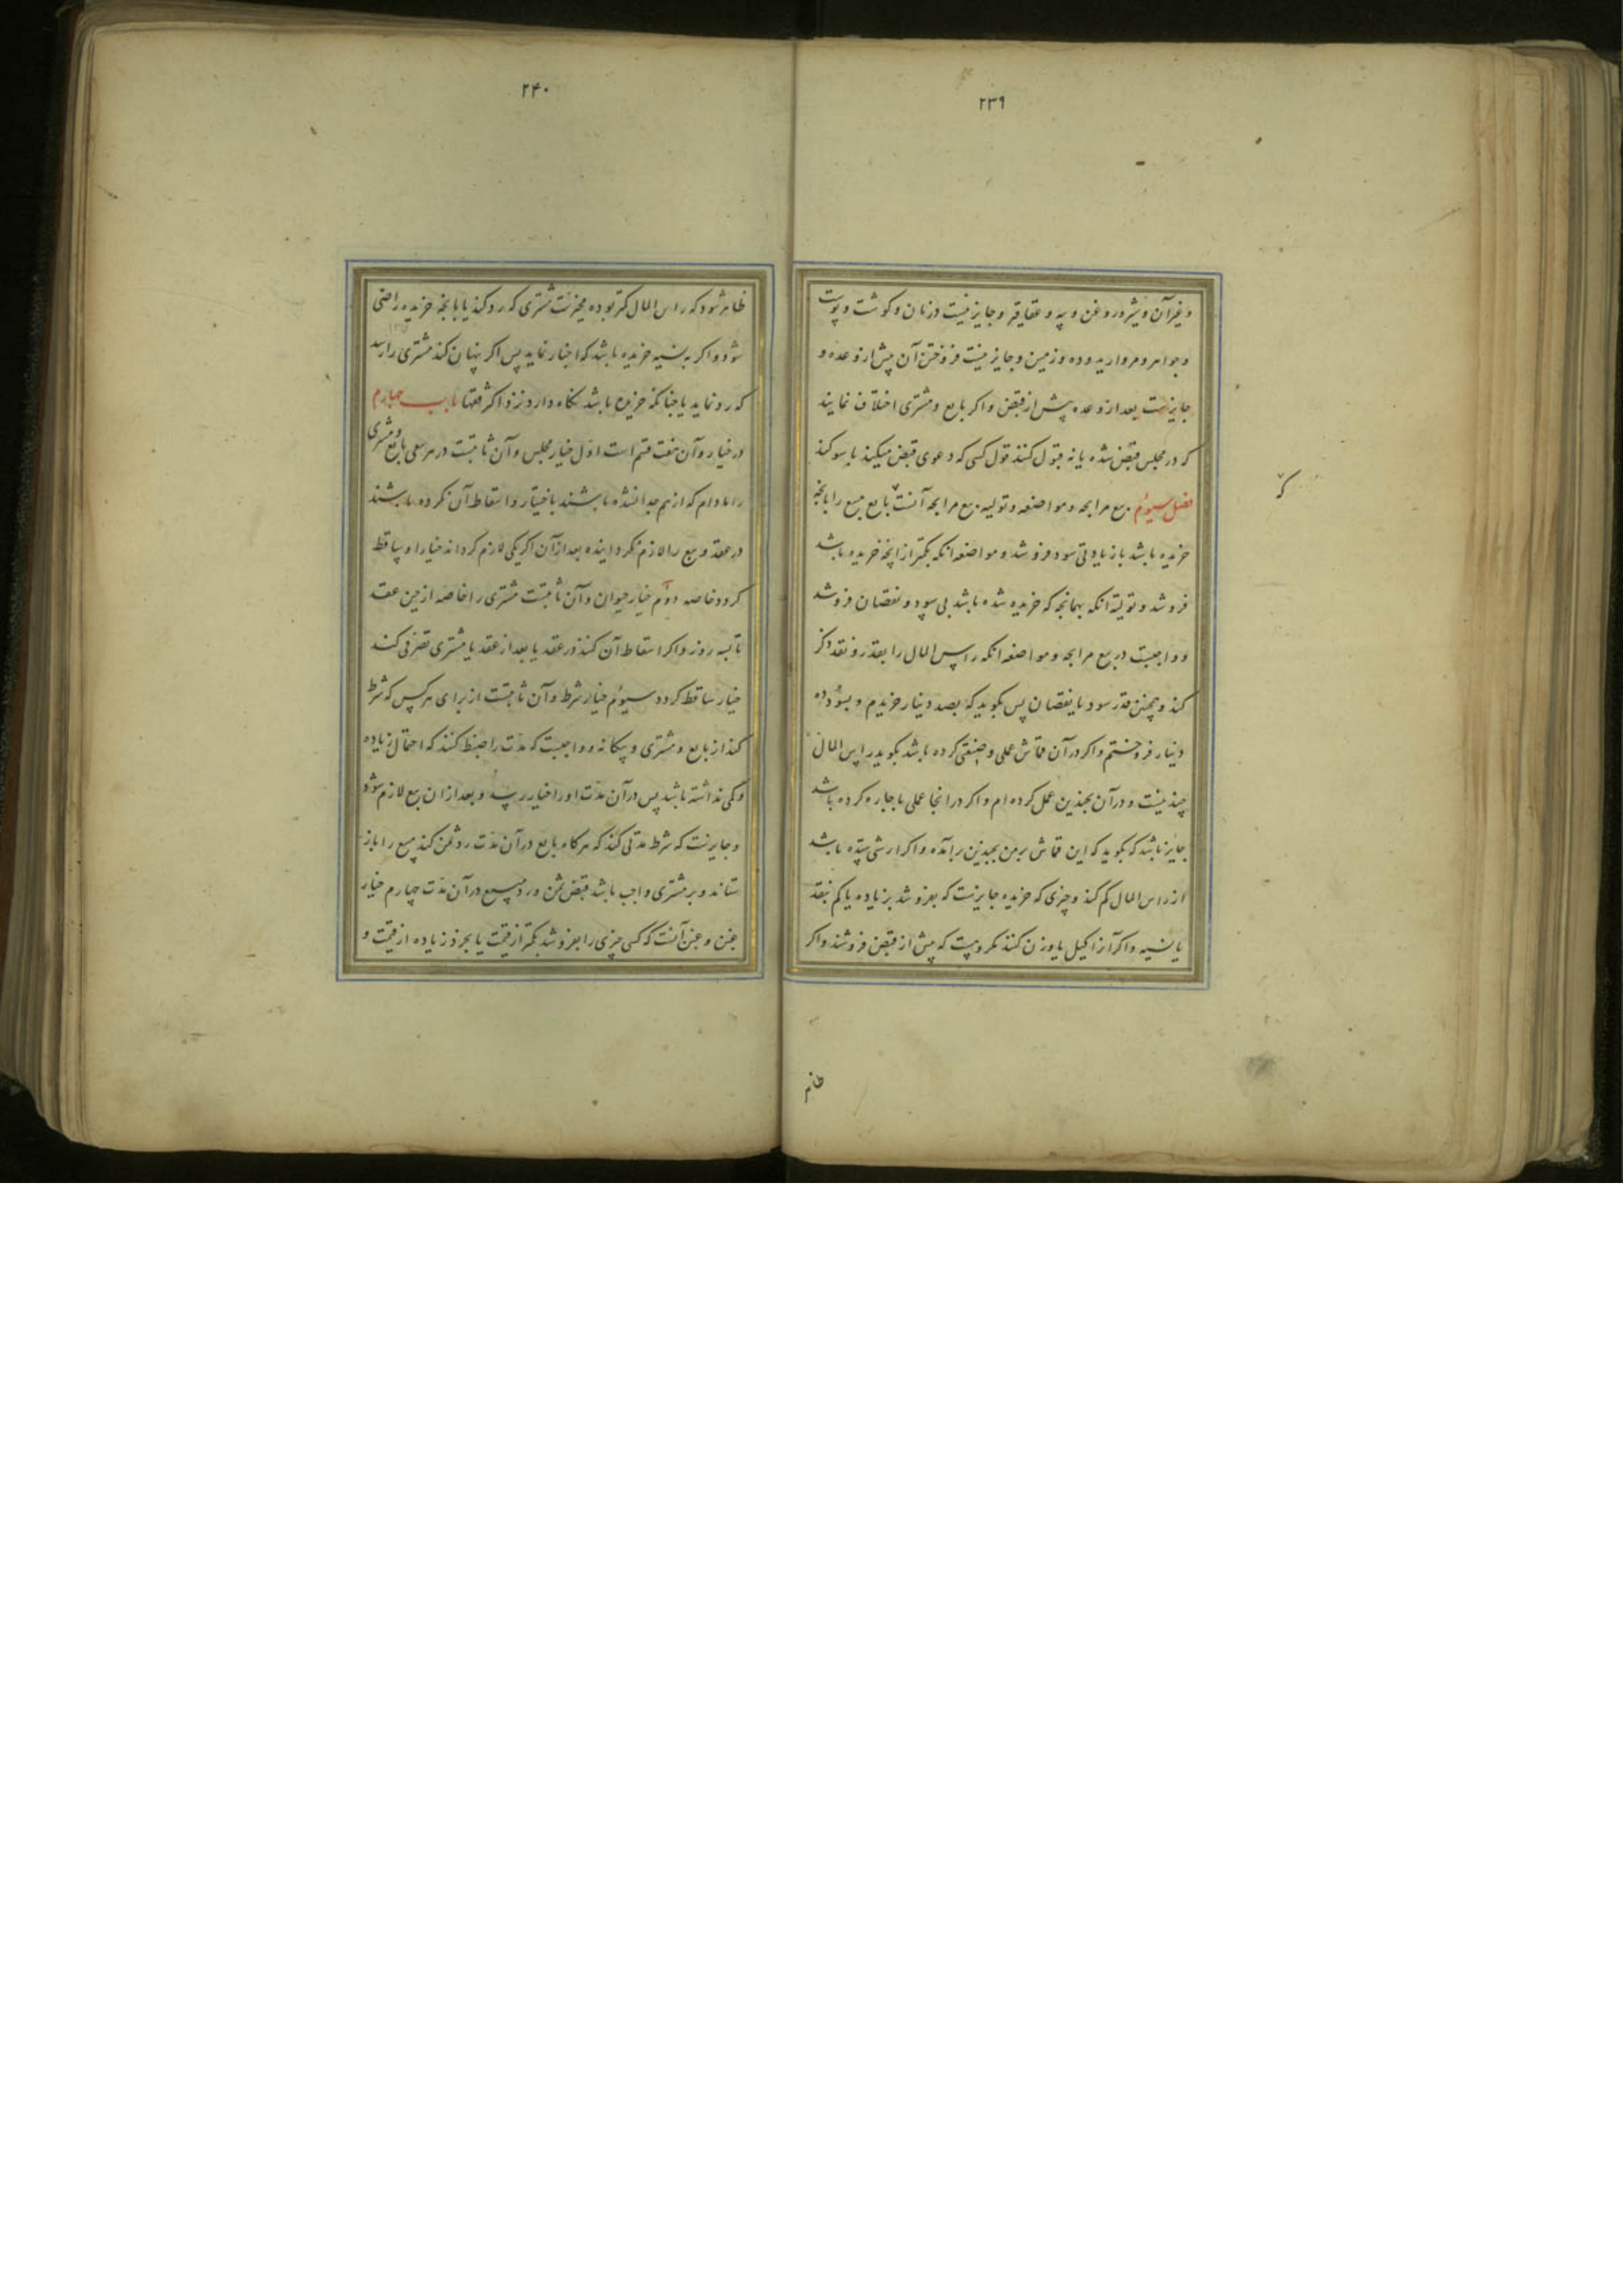 ۲۳۹
و غیر آن و شیر و روغن و پیه و عقاقیر و جایز نیست در نان و کوشت و پوست
و جواهر و مروارید و ده و زمین و جایز نیست فروختن آن پیش از وعده و
جایزست بعد از وعده پیش از قبض و اکر بایع و مشتری اختلاف نمایند
که در مجلس قبض شده یا نه قبول کنند قول کسی که دعوی قبض میکند با سوکند
فصل سیوم بیع مرابحه و مواضعه و تولیه بیع مرابحه آنست بایع مبیع را بانچه
که
خریده باشد با زیادتی سود فروشد و مواضعه انکه بکمتر از انچه خریده باشد
فروشد و تولیه انکه بهمانچه که خریده شده باشد بی سود و نقصان فروشد
و واجبست در بیع مرابحه و مواضعه انکه راس المال را بقدر و نقد ذکر
کند و همچنین قدر سود یا نقصان پس بکوید که بصد دینار خریدم و بسود ده
دینار فروختم و اکر در آن قماش عملی و صنعتی کرده باشد بکوید راس المال
چندینست و در آن بچندین عمل کرده ام و اکر در انجا عملی باجاره کرده باشد
جایز باشد که بکوید که این قماش بر من بچندین برآمده و اکر ارشی ستده باشد
از راس المال کم کند و چیزی که خریده جایزست که بفروشد بزیاده یا کم بنقد
یا نسیه و اکر آنرا کیل یا وزن کنند مکروهست که پیش از قبض فروشند و اکر
۲۴۰
ظاهر شود که راس المال کمتر بوده مخیرست مشتری که رد کند یا بانچه خریده راضی
شود و اکر به نسیه خریده باشد که اخبار نماید پس اکر پنهان کند مشتری را رسد
که رد نماید یا چنانکه خریده باشد نکاه دارد نزد اکثر فقها باب چهارم
در خیار و آن هفت قسم است اول خیار مجلس و آن ثابتست در هر بیعی بایع و مشتری
را مادام که از هم جدا نشده باشند باختیار و اسقاط آن نکرده باشند
در عقد و بیع را لازم نکردانیده بعد از آن اکر یکی لازم کرداند خیار او ساقط
کردد خاصه دوم خیار حیوان و آن ثابتست مشتری را خاصه از حین عقد
تا سه روز و اکر اسقاط آن کنند در عقد یا بعد از عقد یا مشتری تصرفی کند
خیار ساقط کردد سیوم خیار شرط و آن ثابتست از برای هر کس که شرط
کند از بایع و مشتری و بیکانه و واجبست که مدت را ضبط کنند که احتمال زیاده
و کمی نداشته باشد پس در آن مدت او را خیار رسد و بعد از ان بیع لازم شود
و جایزست که شرط مدتی کند که هرکاه بایع در آن مدت رد ثمن کند مبیع را باز
ستاند و بر مشتری واجب باشد قبض ثمن و رد مبیع در آن مدت چهارم خیار
غبن و غبن آنست که کسی چیزی را بفروشد بکمتر از قیمت یا بخرد زیاده از قیمت و